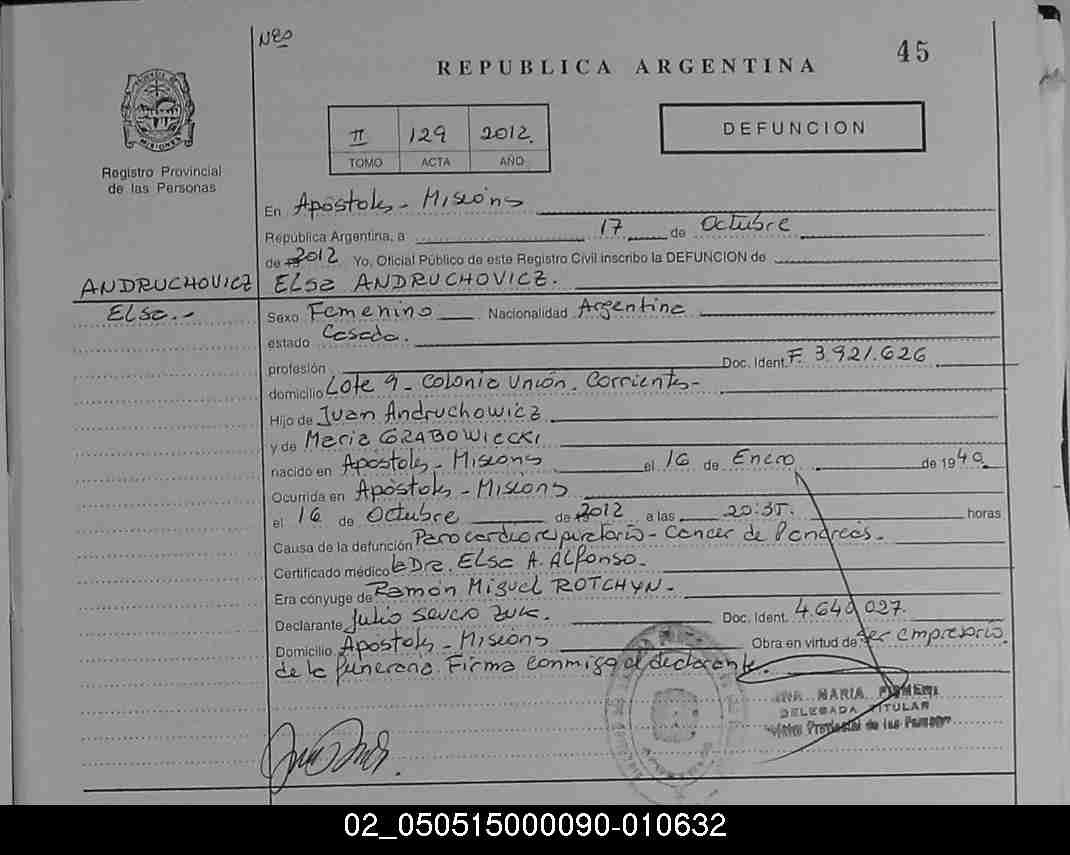 Nro
45
REPUBLICA ARGENTINA
II 129 2012.
TOMO ACTA AÑO
DEFUNCION
MISIONES
Registro Provincial
de las Personas
En Apóstoles - Misiones
República Argentina, a 17 de Octubre
de 2012 Yo, Oficial Público de este Registro Civil inscribo la DEFUNCION de
ANDRUCHOVICZ Elsa ANDRUCHOVICZ.
Elsa.-
Sexo Femenino Nacionalidad Argentina
estado Casada.
profesión Doc. Ident. F. 3.921.626
domicilio Lote 9 - Colonia Unión. Corrientes-
Hijo de Juan Andruchowicz
y de Maria GRABOWIECKI
nacido en Apóstoles - Misiones el 16 de Enero de 1940
Ocurrida en Apóstoles - Misiones
el 16 de Octubre de 2012 a las 20:35. horas
Causa de la defunción Paro cardiorespiratorio - Cancer de Pancreás.
Certificado médico la Dra. Elsa A. Alfonso.
Era cónyuge de Ramón Miguel ROTCHYN.
Declarante Julio Doc. Ident. 4.640.027.
Domicilio Apóstoles - Misiones Obra en virtud de ser empresario
de la funeraria. Firma conmigo el declarante.
MARIA
DELEGADA TITULAR
Provincial de las Personas
02_050515000090-010632